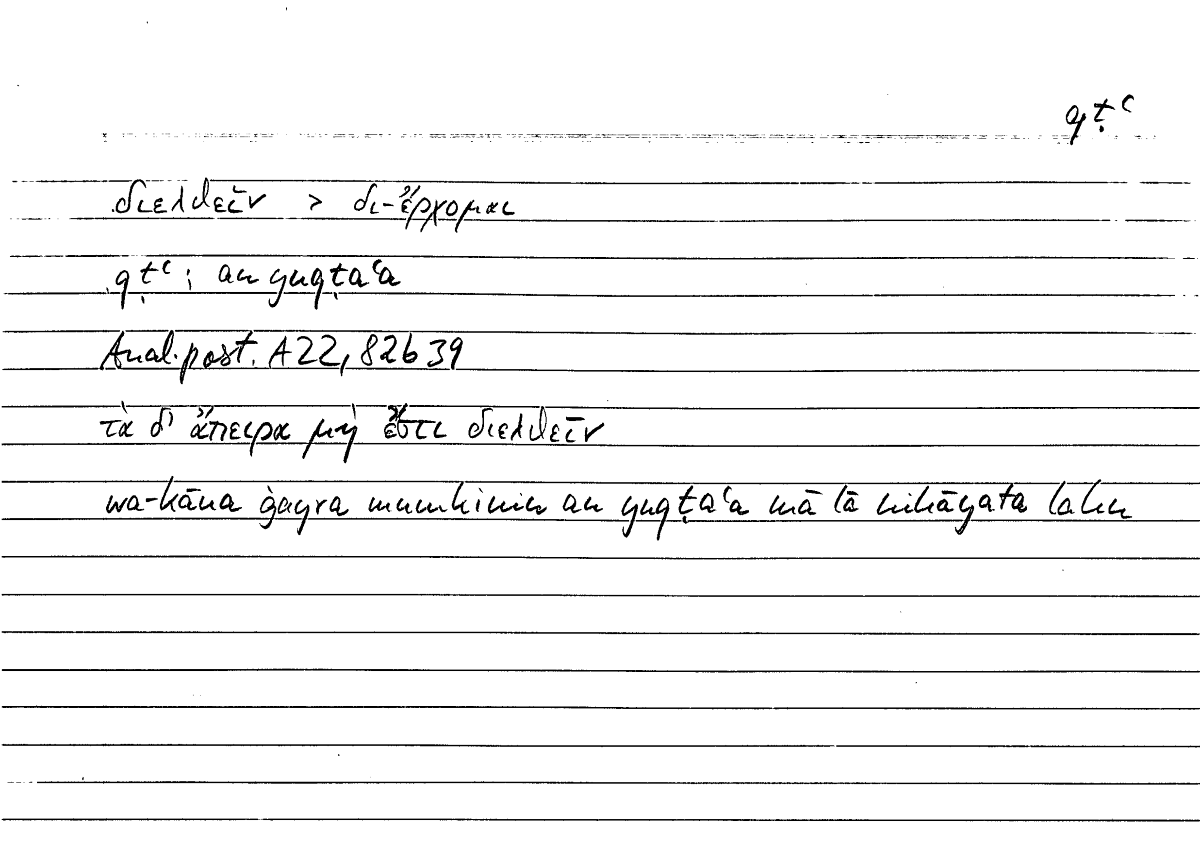 qṭʿ
διελθεῖν > δι-έρχομαι
qṭʿ; an yuqṭaʿa
Anal. post. A22, 82b39
τὰ δ' ἄπειρα μὴ ἔστι διελθεῖν
wa-kāna ġayra mumkinin an yuqṭaʿa mā lā nihāyata lahu